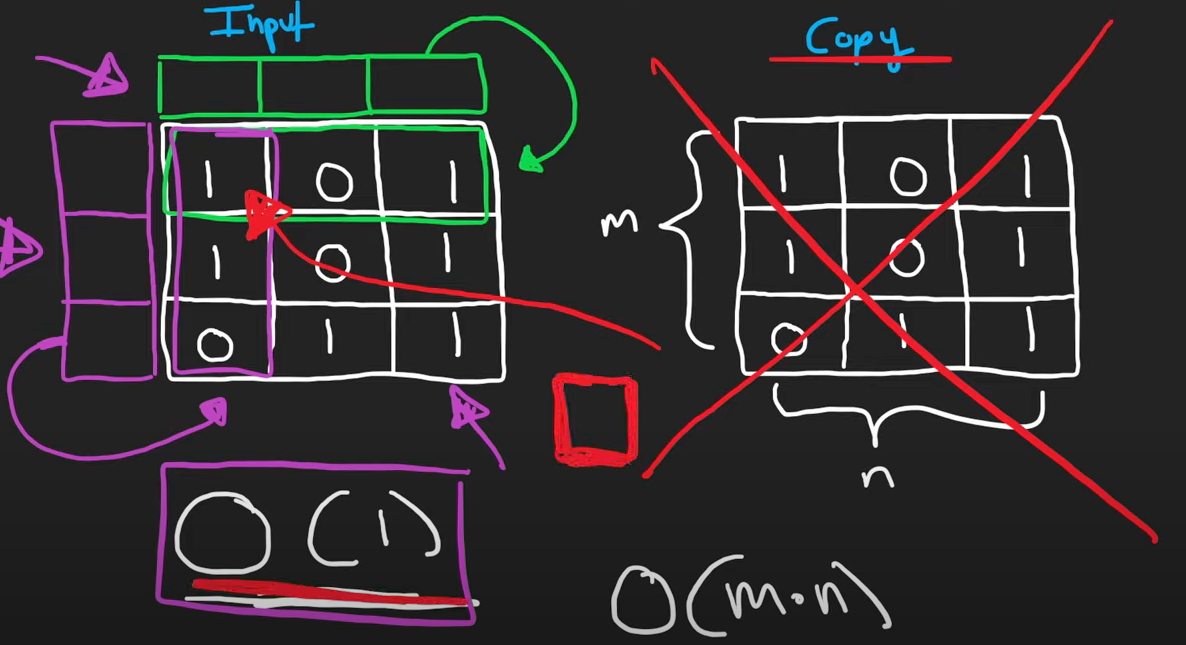 Input
1 0 1
1 0 1
0 1 1
O(1)
Copy
m
1 0 1
1 0 1
0 1 1
n
O(m·n)